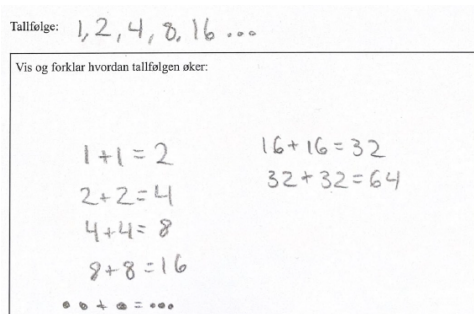 Tallfølge: 1, 2, 4, 8, 16 ...
Vis og forklar hvordan tallfølgen øker:
1+1=2
2+2=4
4+4=8
8+8=16
•• + • = •••
16+16=32
32+32=64